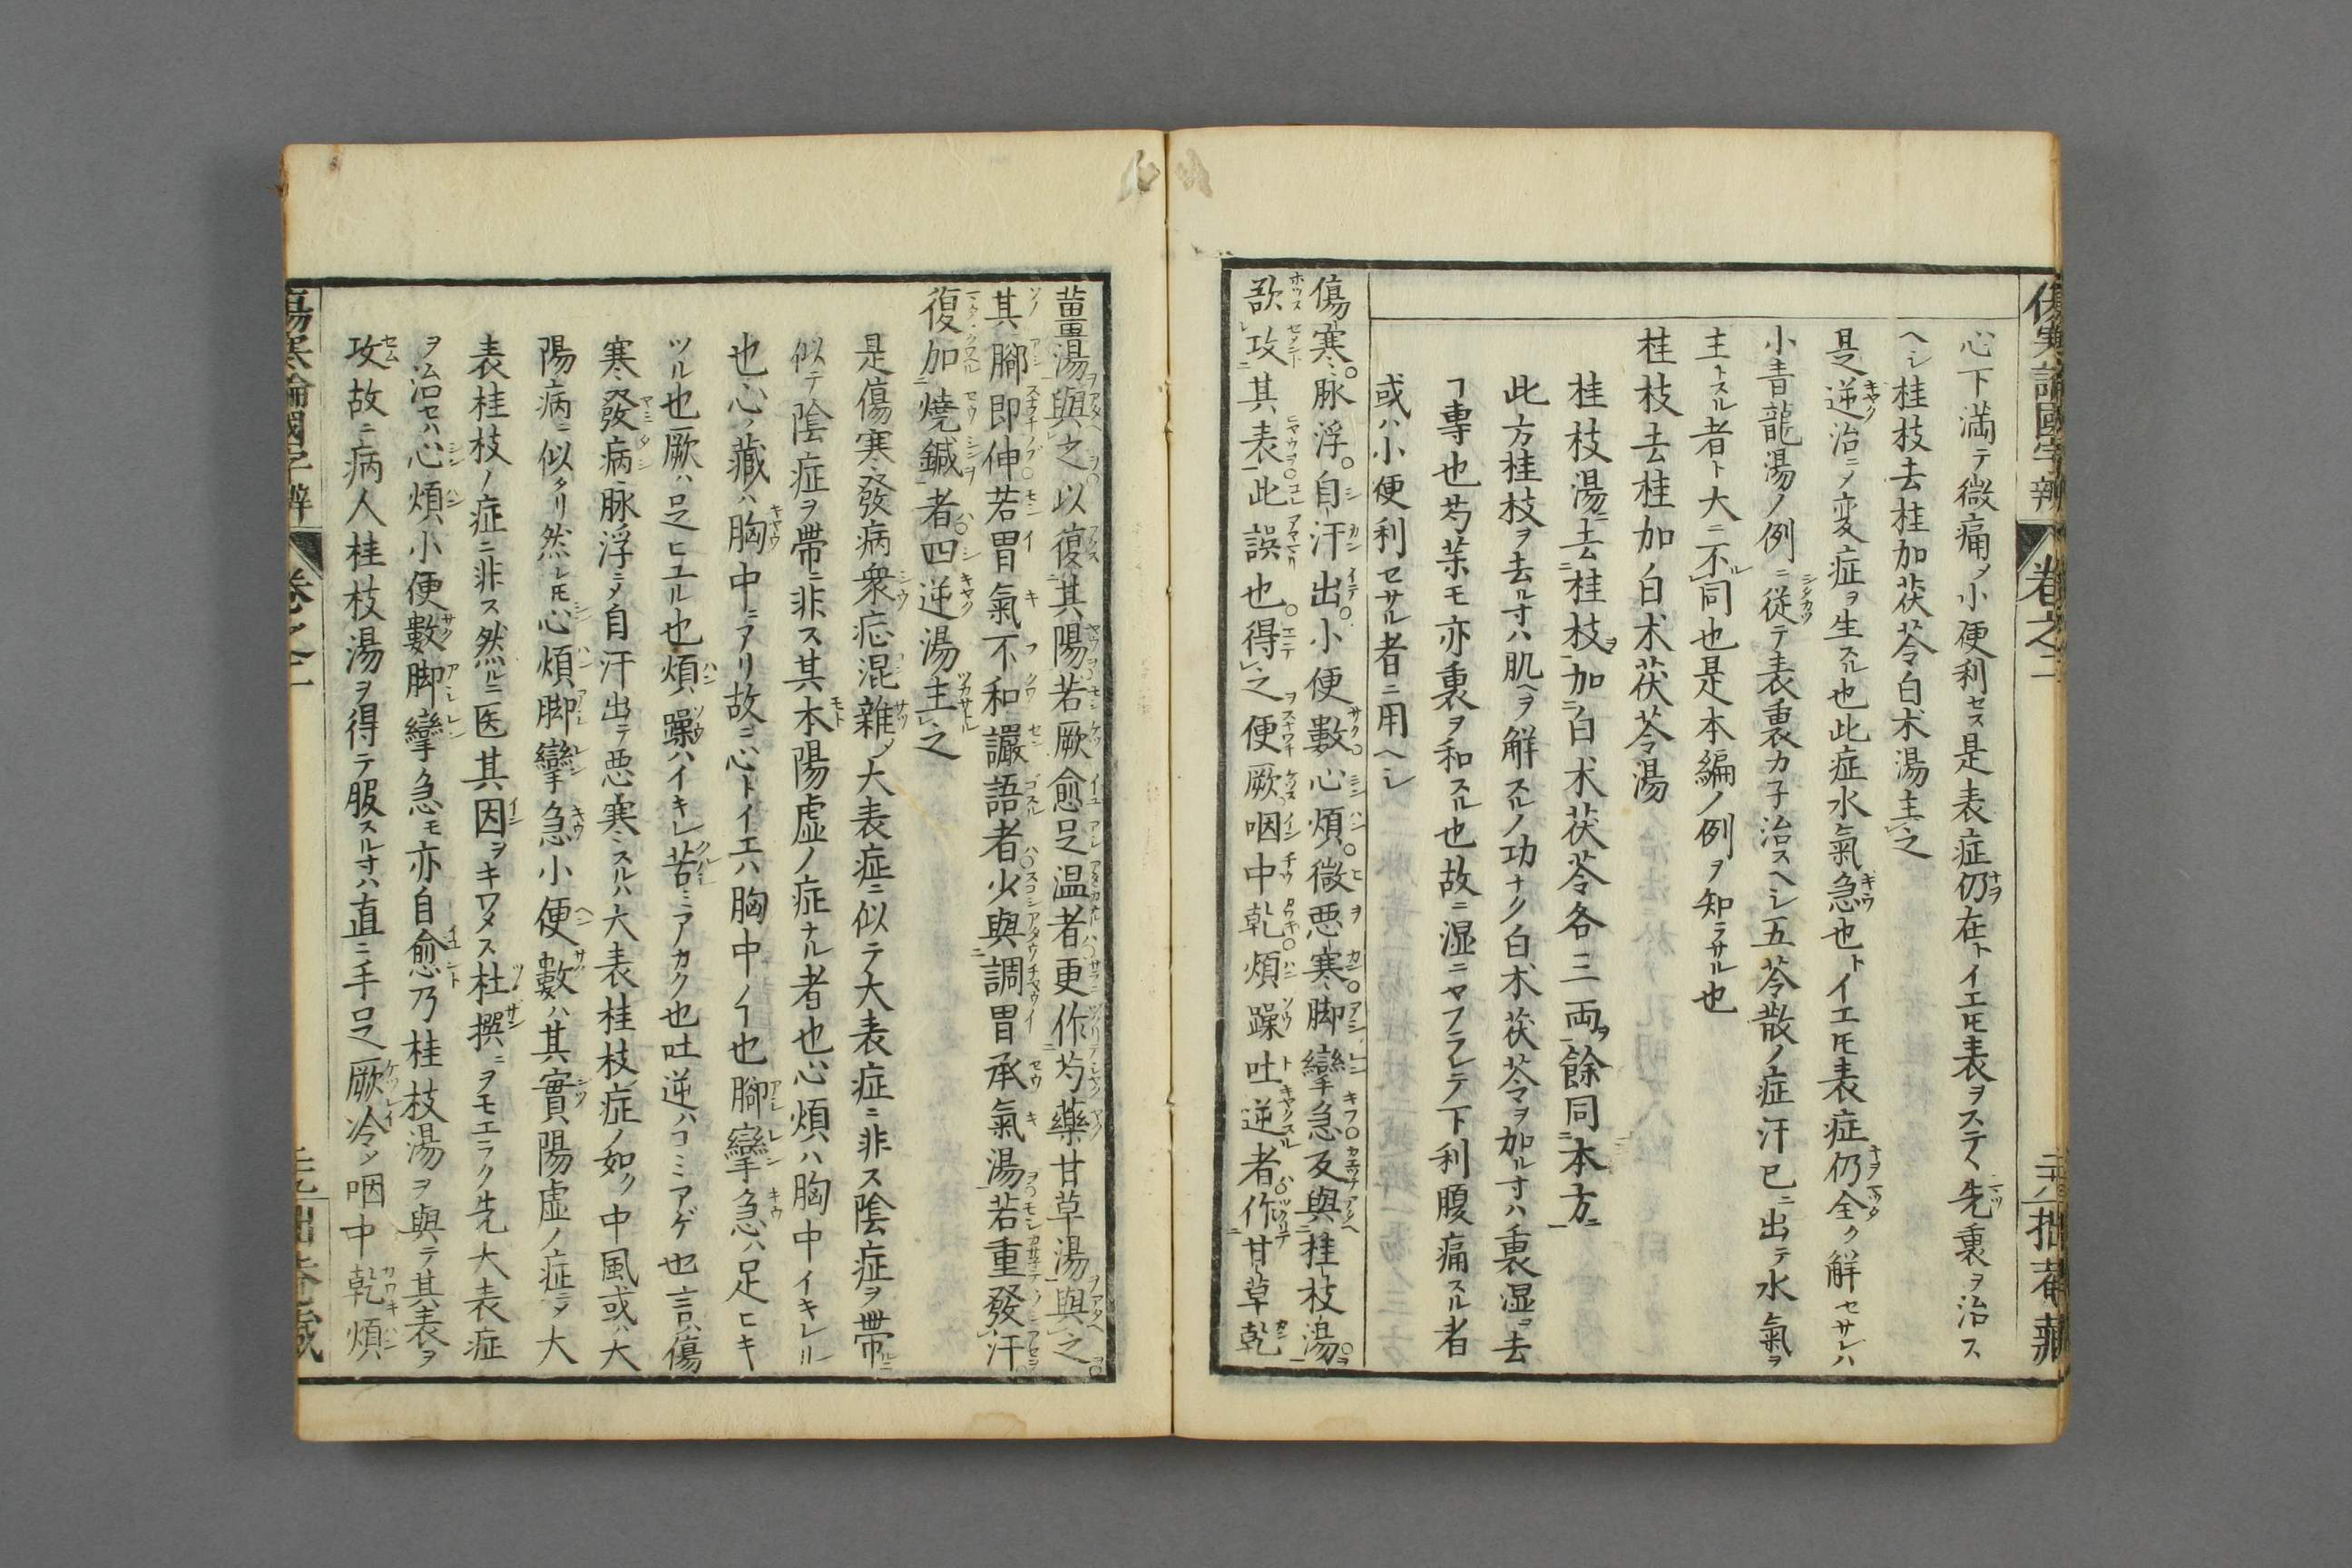 傷寒論國字辨 卷之二 二十八 拙菴藏
心下満テ微痛〆小便利セス是表症仍在トイエ𪜈表ヲステヽ先裏ヲ治ス
ヘシ桂枝去桂加茯苓白朮湯主之
是逆治ニ〆変症ヲ生スル也此症水氣急也トイエ𪜈表症仍全ク解セサレハ
小青龍湯ノ例ニ從テ表裏カ子治スヘシ五苓散ノ症汗已ニ出テ水氣ヲ
主トスル者ト大ニ不同也是本編ノ例ヲ知ラサル也
桂枝去桂加白朮茯苓湯
桂枝湯去桂枝加白朮茯苓各三両餘同本方
此方桂枝ヲ去ル寸ハ肌ヘヲ解スルノ功ナク白朮茯苓ヲ加ル寸ハ裏湿ヲ去
ヿ専也芍茱モ亦裏ヲ和スル也故ニ湿ニヤフラレテ下利腹痛スル者
或ハ小便利セサル者ニ用ヘシ
傷寒脉浮自汗出小便數心煩微悪寒脚攣急反與桂枝湯
欲攻其表此誤也得之便厥咽中乾煩躁吐逆者作甘草乾
薑湯與之以復其陽若厥愈足温者更作芍藥甘草湯與之
其腳即伸若胃氣不和讝語者火與調胃承氣湯若重發汗
復加燒鍼者四逆湯主之
是傷寒發病衆症混雜〆大表症ニ似テ大表症ニ非ス陰症ヲ帶ルニ
似テ陰症ヲ帶ニ非ス其本陽虛ノ症ナル者也心煩ハ胸中イキレル
也心ノ藏ハ胸中ニアリ故ニ心トイエハ胸中ノヿ也腳攣急ハ足ヒキ
ツル也厥ハ足ヒユル也煩躁ハイキレ苦ミアカク也吐逆ハコミアゲ也言ハ傷
寒發病脉浮ニ〆自汗出テ悪寒スルハ大表桂枝症ノ如ク中風或ハ大
陽病ニ似タリ然レ𪜈心煩脚攣急小便數ハ其實陽虛ノ症ニ〆大
表桂枝ノ症ニ非ス然ルニ医其因ヲキワメス杜撰ニヲモエラク先大表症
ヲ治セハ心煩小便數脚攣急モ亦自愈ント乃桂枝湯ヲ與テ其表ヲ
攻故ニ病人桂枝湯ヲ得テ服スル寸ハ直ニ手足厥冷〆咽中乾煩
傷寒論國字辨 卷之二 拙菴藏